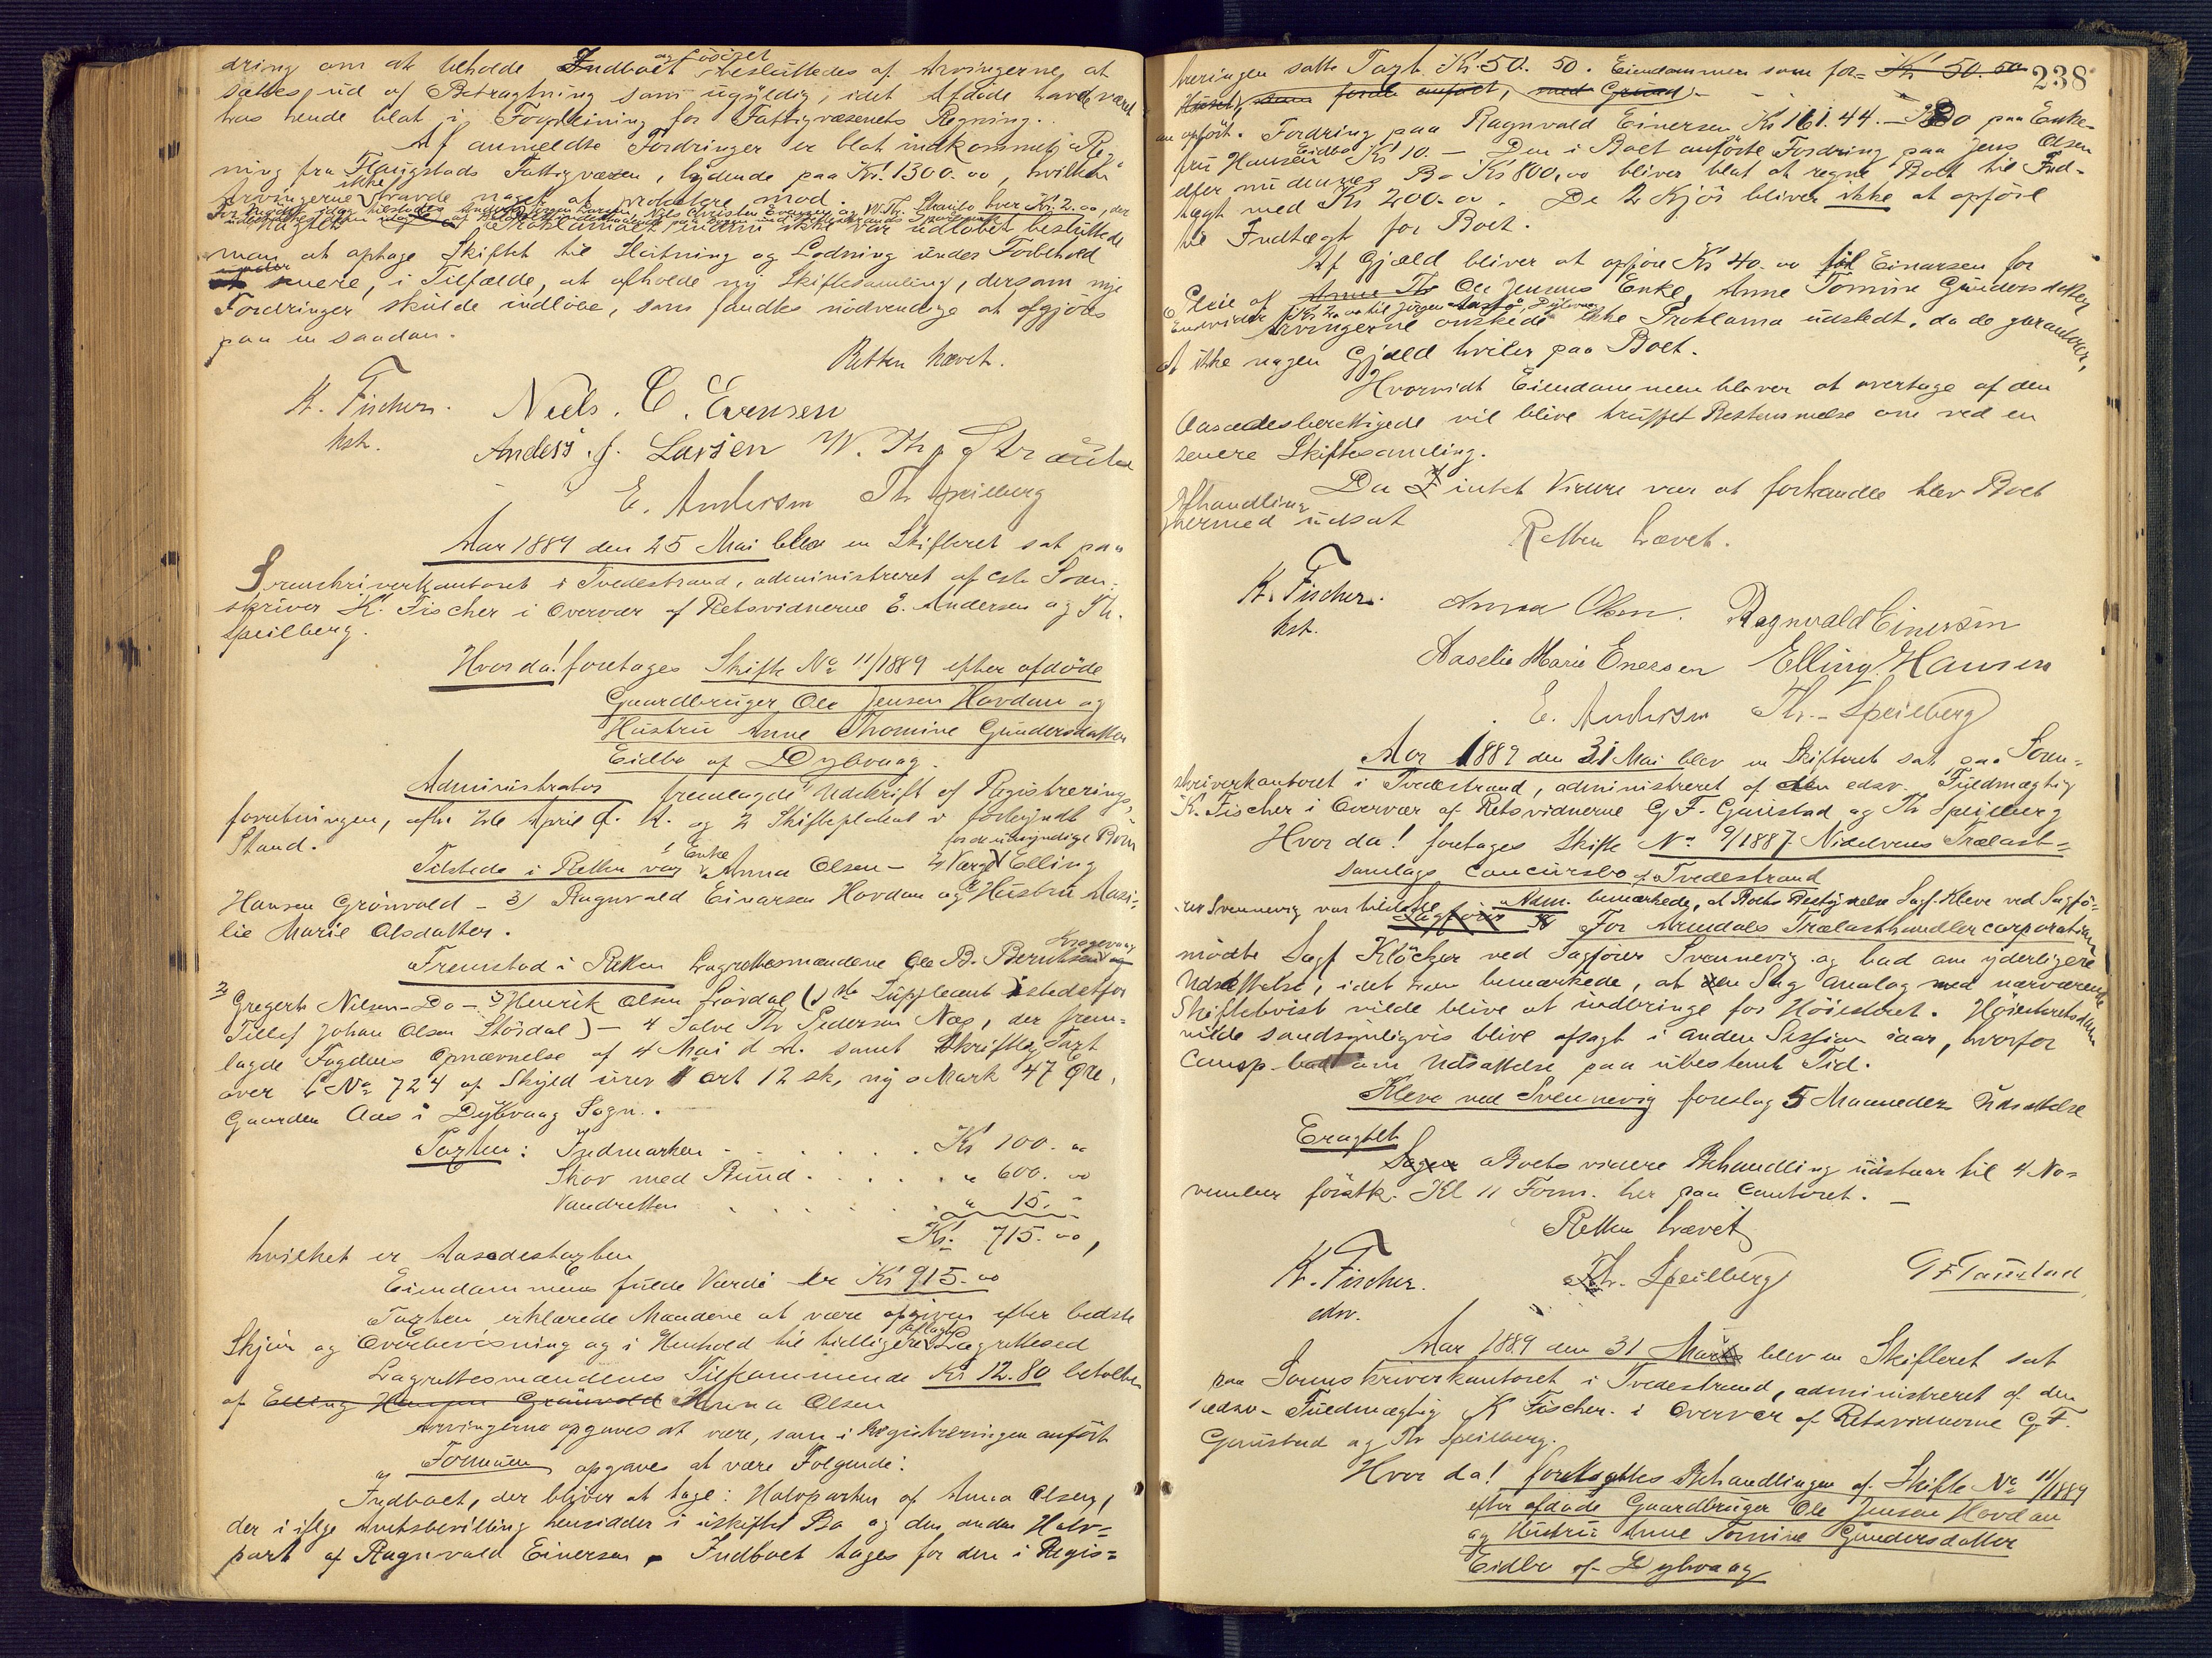 dring om at beholde Indboet og Løsøret besluttedes af Arvingerne at
sættes ud af Betragtning som ugyldig, idet Afdøde havde været
hos hende blot i Forpleining for Fattigvæsenets Regning.
Af anmeldte Fordringer er blot indkommet Reg-
ning fra Flaugstads Fattigvæsen, lydende paa Kr. 1300.00, hvilken
Arvingerne ikke havde noget at protestere mod.
Proklamaet endnu ikke var udløbet, besluttede
man at optage Skiftet til Slutning og Lodning under Forbehold
senere, i Tilfælde, at afholde ny Skiftesamling, dersom nye
Fordringer skulde indløbe, som fandtes nødvendige at afgjøres
paa en saadan.
Retten hævet.
K. Fischer.
kst.
Niels. C. Evensen
Anders. J. Larsen W. Th.
E. Andersen Th Speilberg
Aar 1889 den 25 Mai blev en Skifteret sat paa
Sorenskriverkontoret i Tvedestrand, administreret af cst. Soren-
skriver K. Fischer i Overvær af Retsvidnerne E. Andersen og Th.
Speilberg.
Hvor da! foretoges Skifte No 11/1889 efter afdøde
Gaardbruger Ole Jensen Hovdan og
Hustru Anne Thomine Gundersdatter
Eidbo af Dybvaag.
Administrator fremlagde Udskrift af Registrerings-
forretningen, afh. 2de April d. A. og 2 Skifteplakat i forkyndt
Stand.
for de umyndige Børn
Tilstede i Retten var 1 Enke Anna Olsen - 2 Værge Elling
Hansen Grönvold - 3) Ragnvald Einarsen Hovdan og Hustru Aasi-
lie Marie Olsdatter.
Fremstod i Retten Lagrettesmændene Ole B. Berntsen Krogevaag og
Gregert Nilsen - Do - 3 Henrik Olsen Lövdal (1ste Suppleant istedetfor
Tellef Johan Olsen Stösdal) - 4 Salve Th Pedersen Næs, der frem-
lagde Fogdens Opnævnelse af 4 Mai d. A. samt Skriftlig Taxt
over L No 724 af Skyld urev. 1 ort 12 sk, ny 0 Mark 47 Øre,
Gaarden Aas i Dybvaag Sogn.
Taxten: Indmarken . . . . . . Kr 100. 00
Skov med Bund . . . . . " 600. 00
Vandretten . . . . . . " 15. "
Kr. 715. 00,
hvilket er Aasædestaxten
Eiendommens fulde Værdi er Kr 915. 00
Taxten erklærede Mændene at være opgiven efter bedste
Skjøn og Overbevisning og i Henhold til tidligere aflagt Lagrettesed
Lagrettesmændenes Tilkommende Kr 12.80 betaltes
af Elling Hansen Grönvold Anna Olsen
Arvingerne opgaves at være, som i Registreringen anført
Formuen opgaves at være Følgende:
Indboet, der bliver at tage: Halvparten af Anna Olsen,
der i ifølge Amtsbevilling hensidder i uskiftet Bo og den anden Halv-
part af Ragnvald Einersen. Indboet tages for den i Regis-
238
treringen satte Taxt. Kr. 50. 50. Eiendommen som for- Kr 50. 50
Huset, som forste anført, med Grund
an opført. Fordring paa Ragnvald Einersen Kr 161.44. - Do paa Enke-
fru Hansen Eidbo Kr 10. - Den i Boet anførte Fordring paa Jens Olsen
eller nu dennes Bo Kr 800,00 bliver blot at regne Boet til Ind-
tægt med Kr 200.00. De 2 Kjør bliver ikke at opføre
til Indtægt for Boet.
Af Gjæld bliver at opføre Kr 40.00 til Einarsen for
Pleie af Anne Th Ole Jensens Enke, Anne Tomine Gundersdatter
Endvidere Kr 2.00 til Jørgen Dybvaag
Arvingerne ønskede ikke Proklama udstedt, da de garanterer,
at ikke nogen Gjæld hviler paa Boet.
Hvorvidt Eiendommen bliver at overtage af den
Aasædesberettigede vil blive truffet Bestemmelse om ved en
senere Skiftesamling.
Da intet Videre var at forhandle blev Boet
Behandling
hermed udsat
Retten hævet.
K. Fischer.
kst.
Anna Olsen. Ragnvald Einersen
Aaselie Marie Enersen Elling Hansen
E. Andersen Th. Speilberg
Aar 1889 den 31 Mai blev en Skifteret sat paa Soren-
skriverkontoret i Tvedestrand, administreret af den edsv. Fuldmægtig
K. Fischer i Overvær af Retsvidnerne G. F. Gaustad og Th Speilberg
Hvor da! foretoges Skifte No 9/1887 Nidelvens Trælast-
samlags Concursbo af Tvedestrand
Adm. bemærkede, at Boets Bestyrelse Sagf. Kleve ved Sagfö-
rer Svennevig var tilstede
For Arendals Trælasthandlercorporation
mødte Sagf Klöcker ved Sagfører Svennevig og bad om yderligere
Udsættelse, idet han bemærkede, at en Sag analog med nærværende
Skiftetvist vilde blive at indbringe for Höiesteret. Höiesteretsdom
vilde sandsynligvis blive afsagt i anden Session iaar, hvorfor
Comp. bad om Udsættelse paa ubestemt Tid.
Kleve ved Svennevig foreslog 5 Maaneders Udsættelse
Eragtet
Boets videre Behandling udstaar til 4 No-
vember førstk. Kl 11 Form. her paa Contoret. -
Retten hævet
K. Fischer.
edsv.
Th. Speilberg
G F Gaustad
Aar 1889 den 31 Mai blev en Skifteret sat
paa Sorenskriverkontoret i Tvedestrand, administreret af den
edsv. Fuldmægtig K Fischer i Overvær af Retsvidnerne G. F.
Gaustad og Th Speilberg.
Hvor da! fortsattes Behandlingen af Skifte No 11/1889
efter afdøde Gaardbruger Ole Jensen Hovdan
og Hustru Anne Tomine Gundersdatter
Eidbo af Dybvaag